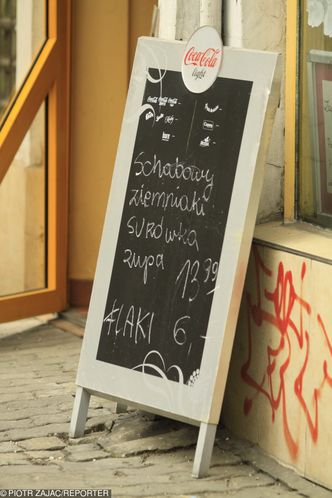 Coca-Cola
light
Schabowy
ziemniaki
surówka
zupa 13,99
FLAKI 6,-
© PIOTR ZAJAC/REPORTER